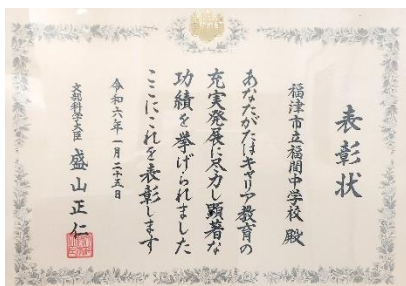 表彰状
福津市立福間中学校 殿
あなたがたはキャリア教育の
充実発展に尽力し顕著な
功績を挙げられました
ここにこれを表彰します
令和六年一月二十五日
文部科学大臣 盛山正仁